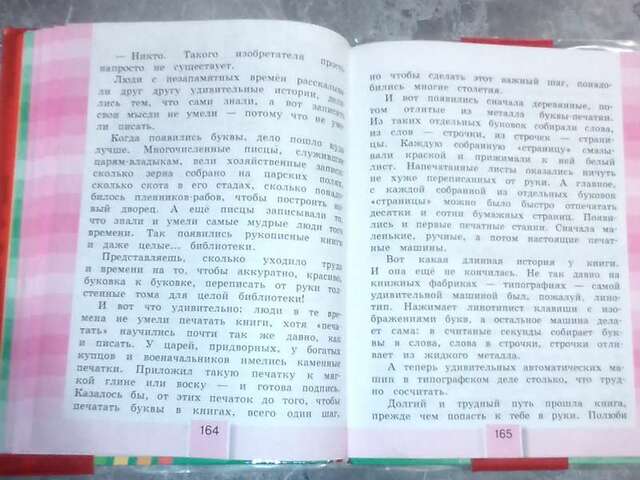 — Никто. Такого изобретателя просто-
напросто не существует.
Люди с незапамятных времён рассказыва-
ли друг другу удивительные истории, дели-
лись тем, что сами знали, а вот записать
свои мысли не умели — потому что не уме-
ли писать.
Когда появились буквы, дело пошло куда
лучше. Многочисленные писцы, служившие
царям-владыкам, вели хозяйственные записи:
сколько зерна собрано на царских полях,
сколько скота в его стадах, сколько понадо-
билось пленников-рабов, чтобы построить но-
вый дворец. А ещё писцы записывали то,
что знали и умели самые мудрые люди того
времени. Так появились рукописные книги
и даже целые... библиотеки.
Представляешь, сколько уходило труда
и времени на то, чтобы аккуратно, красиво,
буковка к буковке, переписать от руки тол-
стенные тома для целой библиотеки!
И вот что удивительно: люди в те вре-
мена не умели печатать книги, хотя «печа-
тать» научились почти так же давно, как
и писать. У царей, придворных, у богатых
купцов и военачальников имелись каменные
печатки. Приложил такую печатку к мяг-
кой глине или воску — и готова подпись.
Казалось бы, от этих печаток до того, чтобы
печатать буквы в книгах, всего один шаг,
164
но чтобы сделать этот важный шаг, понадо-
бились многие столетия.
И вот появились сначала деревянные, по-
том отлитые из металла буквы-печатки.
Из таких отдельных буковок собирали слова,
из слов — строчки, из строчек — страни-
цы. Каждую собранную «страницу» смазы-
вали краской и прижимали к ней белый
лист. Напечатанные листы оказались ничуть
не хуже переписанных от руки. А главное,
с каждой собранной из отдельных буковок
«страницы» можно было быстро отпечатать
десятки и сотни бумажных страниц. Появи-
лись и первые печатные станки. Сначала ма-
ленькие, ручные, а потом настоящие печат-
ные машины.
Вот какая длинная история у книги.
И она ещё не кончилась. Не так давно на
книжных фабриках — типографиях — самой
удивительной машиной был, пожалуй, лино-
тип. Нажимает линотипист клавиши с изо-
бражениями букв, а остальное машина дела-
ет сама: в считаные секунды собирает бук-
вы в слова, слова в строчки, строчки отли-
вает из жидкого металла.
А теперь удивительных автоматических ма-
шин в типографском деле столько, что труд-
но сосчитать.
Долгий и трудный путь прошла книга,
прежде чем попасть к тебе в руки. Полюби
165